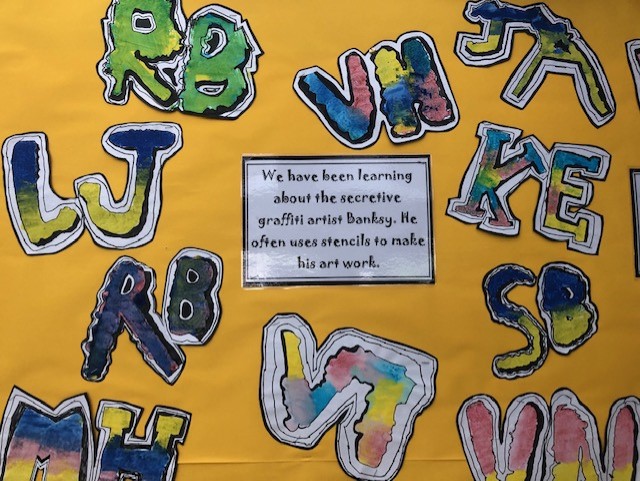 RB
VH
JA
LJ
We have been learning
about the secretive
graffiti artist Banksy. He
often uses stencils to make
his art work.
KE
RB
SB
MH
VN